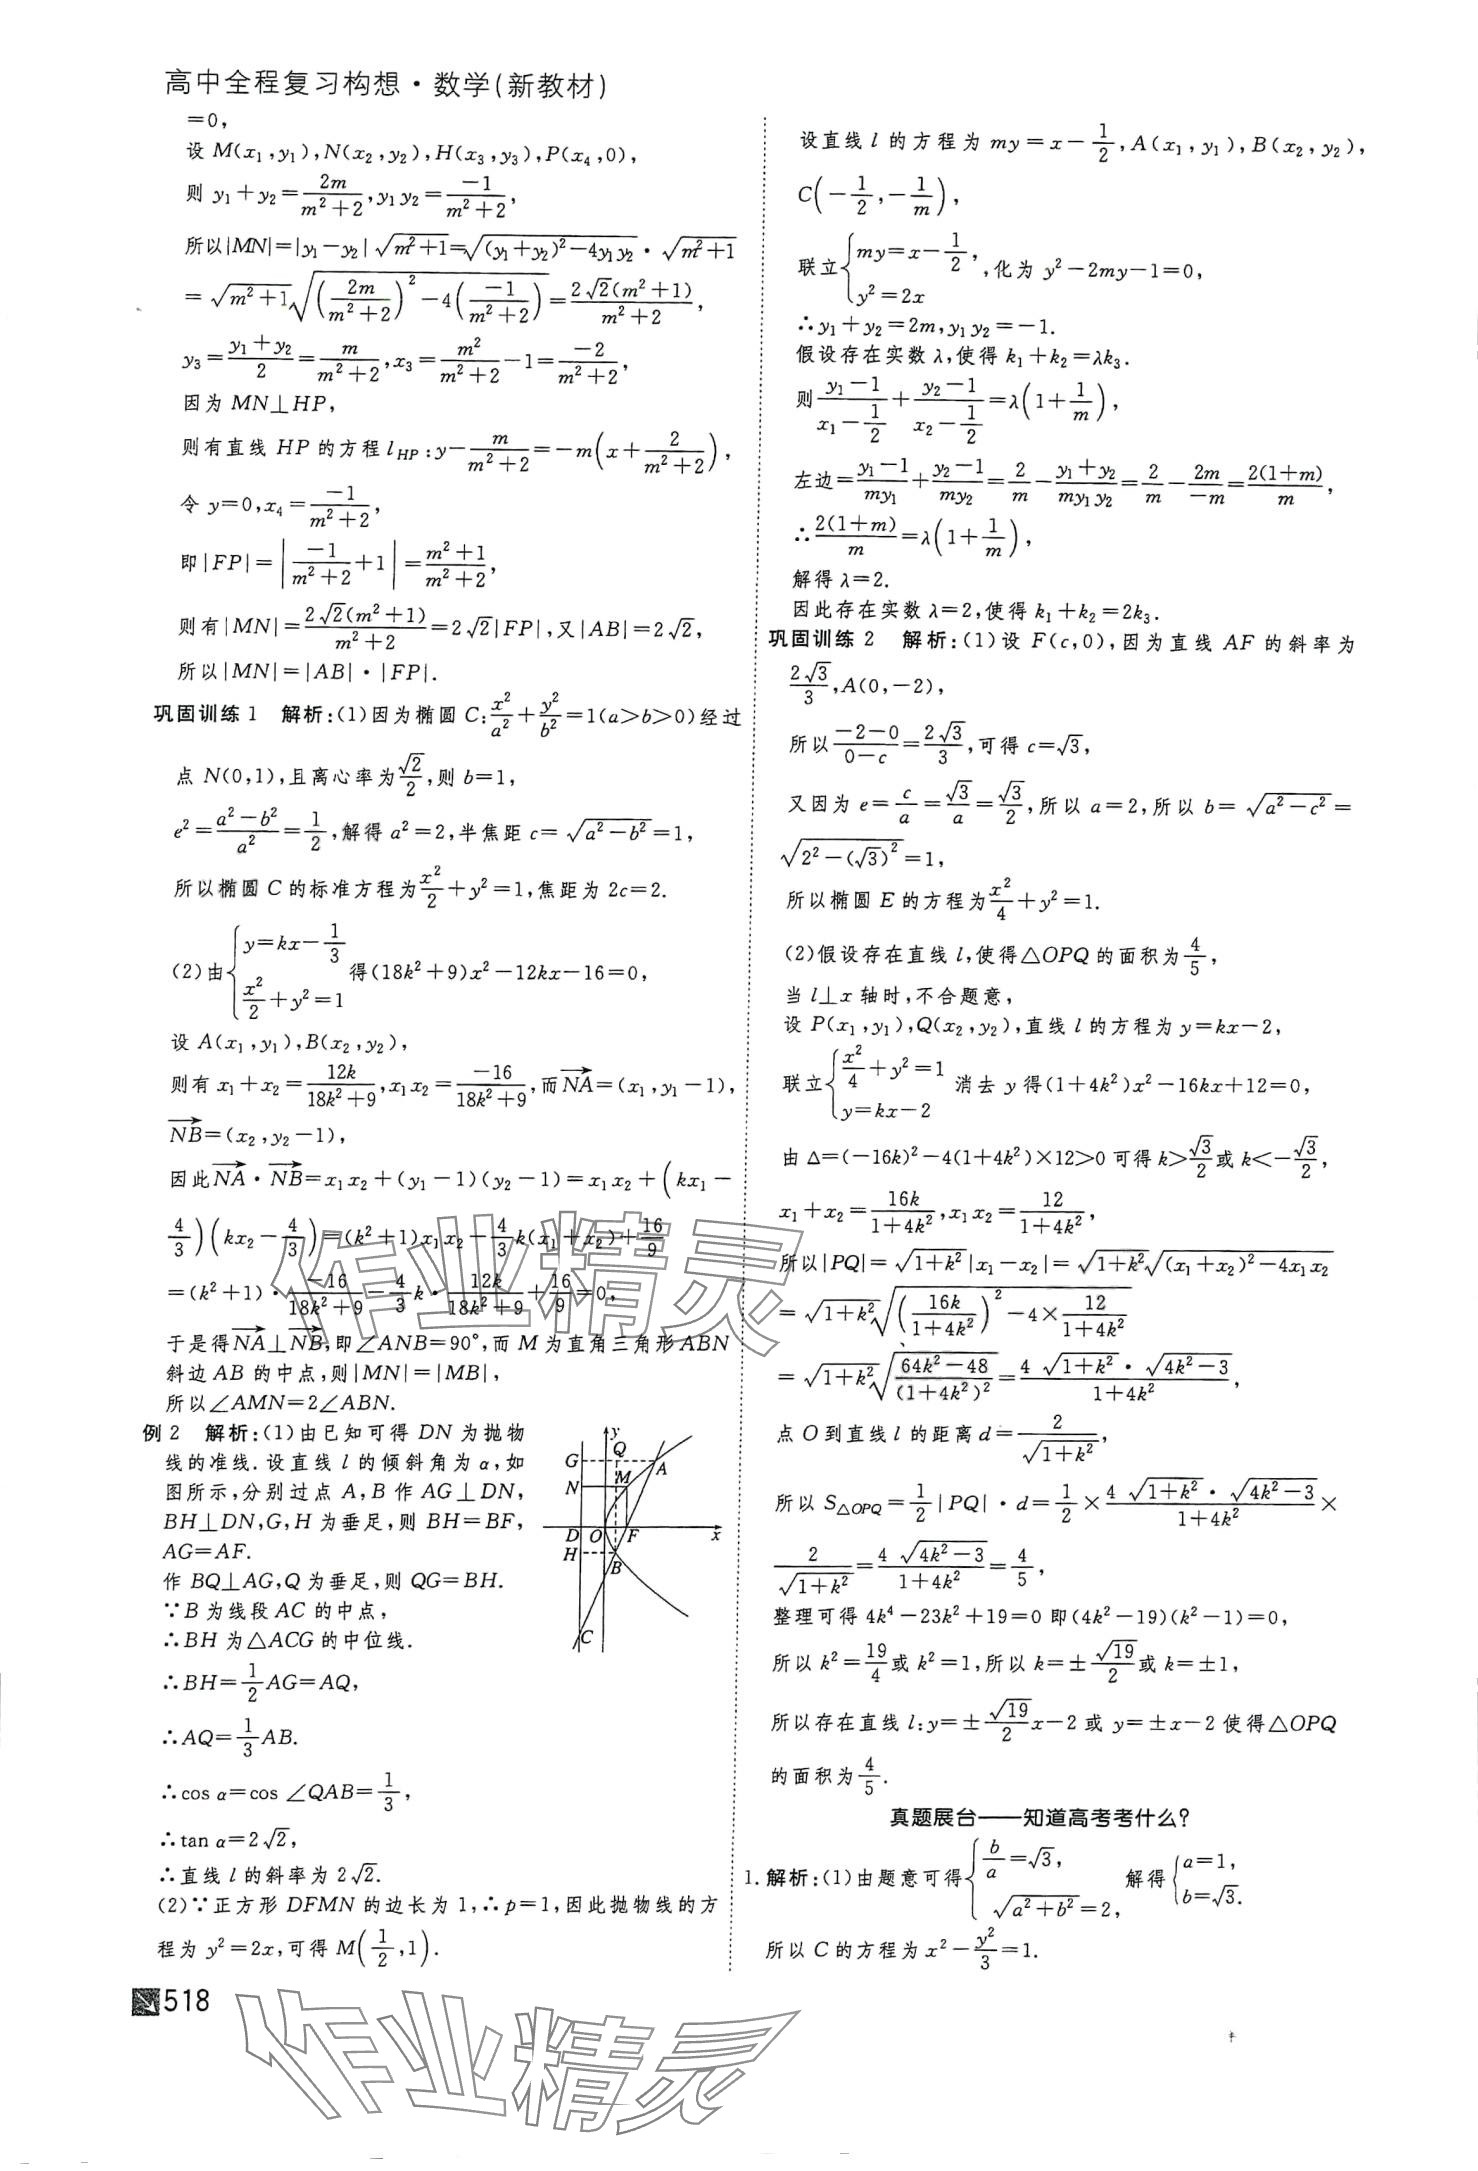 高中全程复习构想·数学(新教材)
=0,
设 M(x₁,y₁),N(x₂,y₂),H(x₃,y₃),P(x₄,0),
则 y₁+y₂=2m/(m²+2),y₁y₂=-1/(m²+2),
所以|MN|=|y₁-y₂|√(m²+1)=√((y₁+y₂)²-4y₁y₂)·√(m²+1)
=√(m²+1)√((2m/(m²+2))²-4(-1/(m²+2)))=2√2(m²+1)/(m²+2),
y₃=(y₁+y₂)/2=m/(m²+2),x₃=m²/(m²+2)-1=-2/(m²+2),
因为 MN⊥HP,
则有直线 HP 的方程 l_HP:y-m/(m²+2)=-m(x+2/(m²+2)),
令 y=0,x₄=-1/(m²+2),
即|FP|=|-1/(m²+2)+1|=(m²+1)/(m²+2),
则有|MN|=2√2(m²+1)/(m²+2)=2√2|FP|,又|AB|=2√2,
所以|MN|=|AB|·|FP|.
巩固训练1 解析:(1)因为椭圆 C:x²/a²+y²/b²=1(a>b>0)经过
点 N(0,1),且离心率为√2/2,则 b=1,
e²=(a²-b²)/a²=1/2,解得 a²=2,半焦距 c=√(a²-b²)=1,
所以椭圆 C 的标准方程为x²/2+y²=1,焦距为 2c=2.
(2)由{y=kx-1/3
x²/2+y²=1 得(18k²+9)x²-12kx-16=0,
设 A(x₁,y₁),B(x₂,y₂),
则有 x₁+x₂=12k/(18k²+9),x₁x₂=-16/(18k²+9),而NA→=(x₁,y₁-1),
NB→=(x₂,y₂-1),
因此NA→·NB→=x₁x₂+(y₁-1)(y₂-1)=x₁x₂+(kx₁-
4/3)(kx₂-4/3)=(k²+1)x₁x₂-4/3k(x₁+x₂)+16/9
=(k²+1)·-16/(18k²+9)-4/3k·12k/(18k²+9)+16/9=0,
于是得NA→⊥NB→,即∠ANB=90°,而 M 为直角三角形 ABN
斜边 AB 的中点,则|MN|=|MB|,
所以∠AMN=2∠ABN.
例2 解析:(1)由已知可得 DN 为抛物
线的准线.设直线 l 的倾斜角为 α,如
图所示,分别过点 A,B 作 AG⊥DN,
BH⊥DN,G,H 为垂足,则 BH=BF,
AG=AF.
作 BQ⊥AG,Q 为垂足,则 QG=BH.
∵B 为线段 AC 的中点,
∴BH 为△ACG 的中位线.
∴BH=1/2AG=AQ,
∴AQ=1/3AB.
∴cos α=cos ∠QAB=1/3,
∴tan α=2√2,
∴直线 l 的斜率为 2√2.
(2)∵正方形 DFMN 的边长为 1,∴p=1,因此抛物线的方
程为 y²=2x,可得 M(1/2,1).
y
G Q A
N M
D O F x
H B
C
518
设直线 l 的方程为 my=x-1/2,A(x₁,y₁),B(x₂,y₂),
C(-1/2,-1/m),
联立{my=x-1/2,
y²=2x ,化为 y²-2my-1=0,
∴y₁+y₂=2m,y₁y₂=-1.
假设存在实数 λ,使得 k₁+k₂=λk₃.
则(y₁-1)/(x₁-1/2)+(y₂-1)/(x₂-1/2)=λ(1+1/m),
左边=(y₁-1)/my₁+(y₂-1)/my₂=2/m-(y₁+y₂)/my₁y₂=2/m-2m/-m=2(1+m)/m,
∴2(1+m)/m=λ(1+1/m),
解得 λ=2.
因此存在实数 λ=2,使得 k₁+k₂=2k₃.
巩固训练2 解析:(1)设 F(c,0),因为直线 AF 的斜率为
2√3/3,A(0,-2),
所以(-2-0)/(0-c)=2√3/3,可得 c=√3,
又因为 e=c/a=√3/a=√3/2,所以 a=2,所以 b=√(a²-c²)=
√(2²-(√3)²)=1,
所以椭圆 E 的方程为x²/4+y²=1.
(2)假设存在直线 l,使得△OPQ 的面积为4/5,
当 l⊥x 轴时,不合题意,
设 P(x₁,y₁),Q(x₂,y₂),直线 l 的方程为 y=kx-2,
联立{x²/4+y²=1
y=kx-2 消去 y 得(1+4k²)x²-16kx+12=0,
由 Δ=(-16k)²-4(1+4k²)×12>0 可得 k>√3/2或 k<-√3/2,
x₁+x₂=16k/(1+4k²),x₁x₂=12/(1+4k²),
所以|PQ|=√(1+k²)|x₁-x₂|=√(1+k²)√((x₁+x₂)²-4x₁x₂)
=√(1+k²)√((16k/(1+4k²))²-4×12/(1+4k²))
=√(1+k²)√((64k²-48)/(1+4k²)²)=4√(1+k²)·√(4k²-3)/(1+4k²),
点 O 到直线 l 的距离 d=2/√(1+k²),
所以 S△OPQ=1/2|PQ|·d=1/2×4√(1+k²)·√(4k²-3)/(1+4k²)×
2/√(1+k²)=4√(4k²-3)/(1+4k²)=4/5,
整理可得 4k⁴-23k²+19=0 即(4k²-19)(k²-1)=0,
所以 k²=19/4或 k²=1,所以 k=±√19/2或 k=±1,
所以存在直线 l:y=±√19/2x-2 或 y=±x-2 使得△OPQ
的面积为4/5.
真题展台——知道高考考什么?
1.解析:(1)由题意可得{b/a=√3,
√(a²+b²)=2, 解得{a=1,
b=√3.
所以 C 的方程为 x²-y²/3=1.
作业精灵
作业精灵